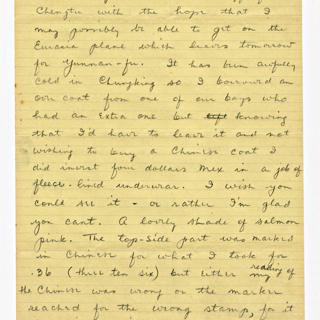 Chengtu with the hope that I
may possibly be able to get on the
Eurasia plane which leaves tomorrow
for Yunnan-fu. It has been awfully
cold in Chungking so I borrowed an
over coat from one of our boys who
had an extra one but knowing
that I'd have to leave it and not
wishing to buy a Chinese coat I
did invest four dollars Mex in a job of
fleece-lined underwear. I wish you
could see it - or rather I'm glad
you cant. A lovely shade of salmon
pink. The top-side part was marked
in Chinese for what I took for
.36 (three ten six) but either my reading of
the Chinese was wrong or the marker
reached for the wrong stamp, for it